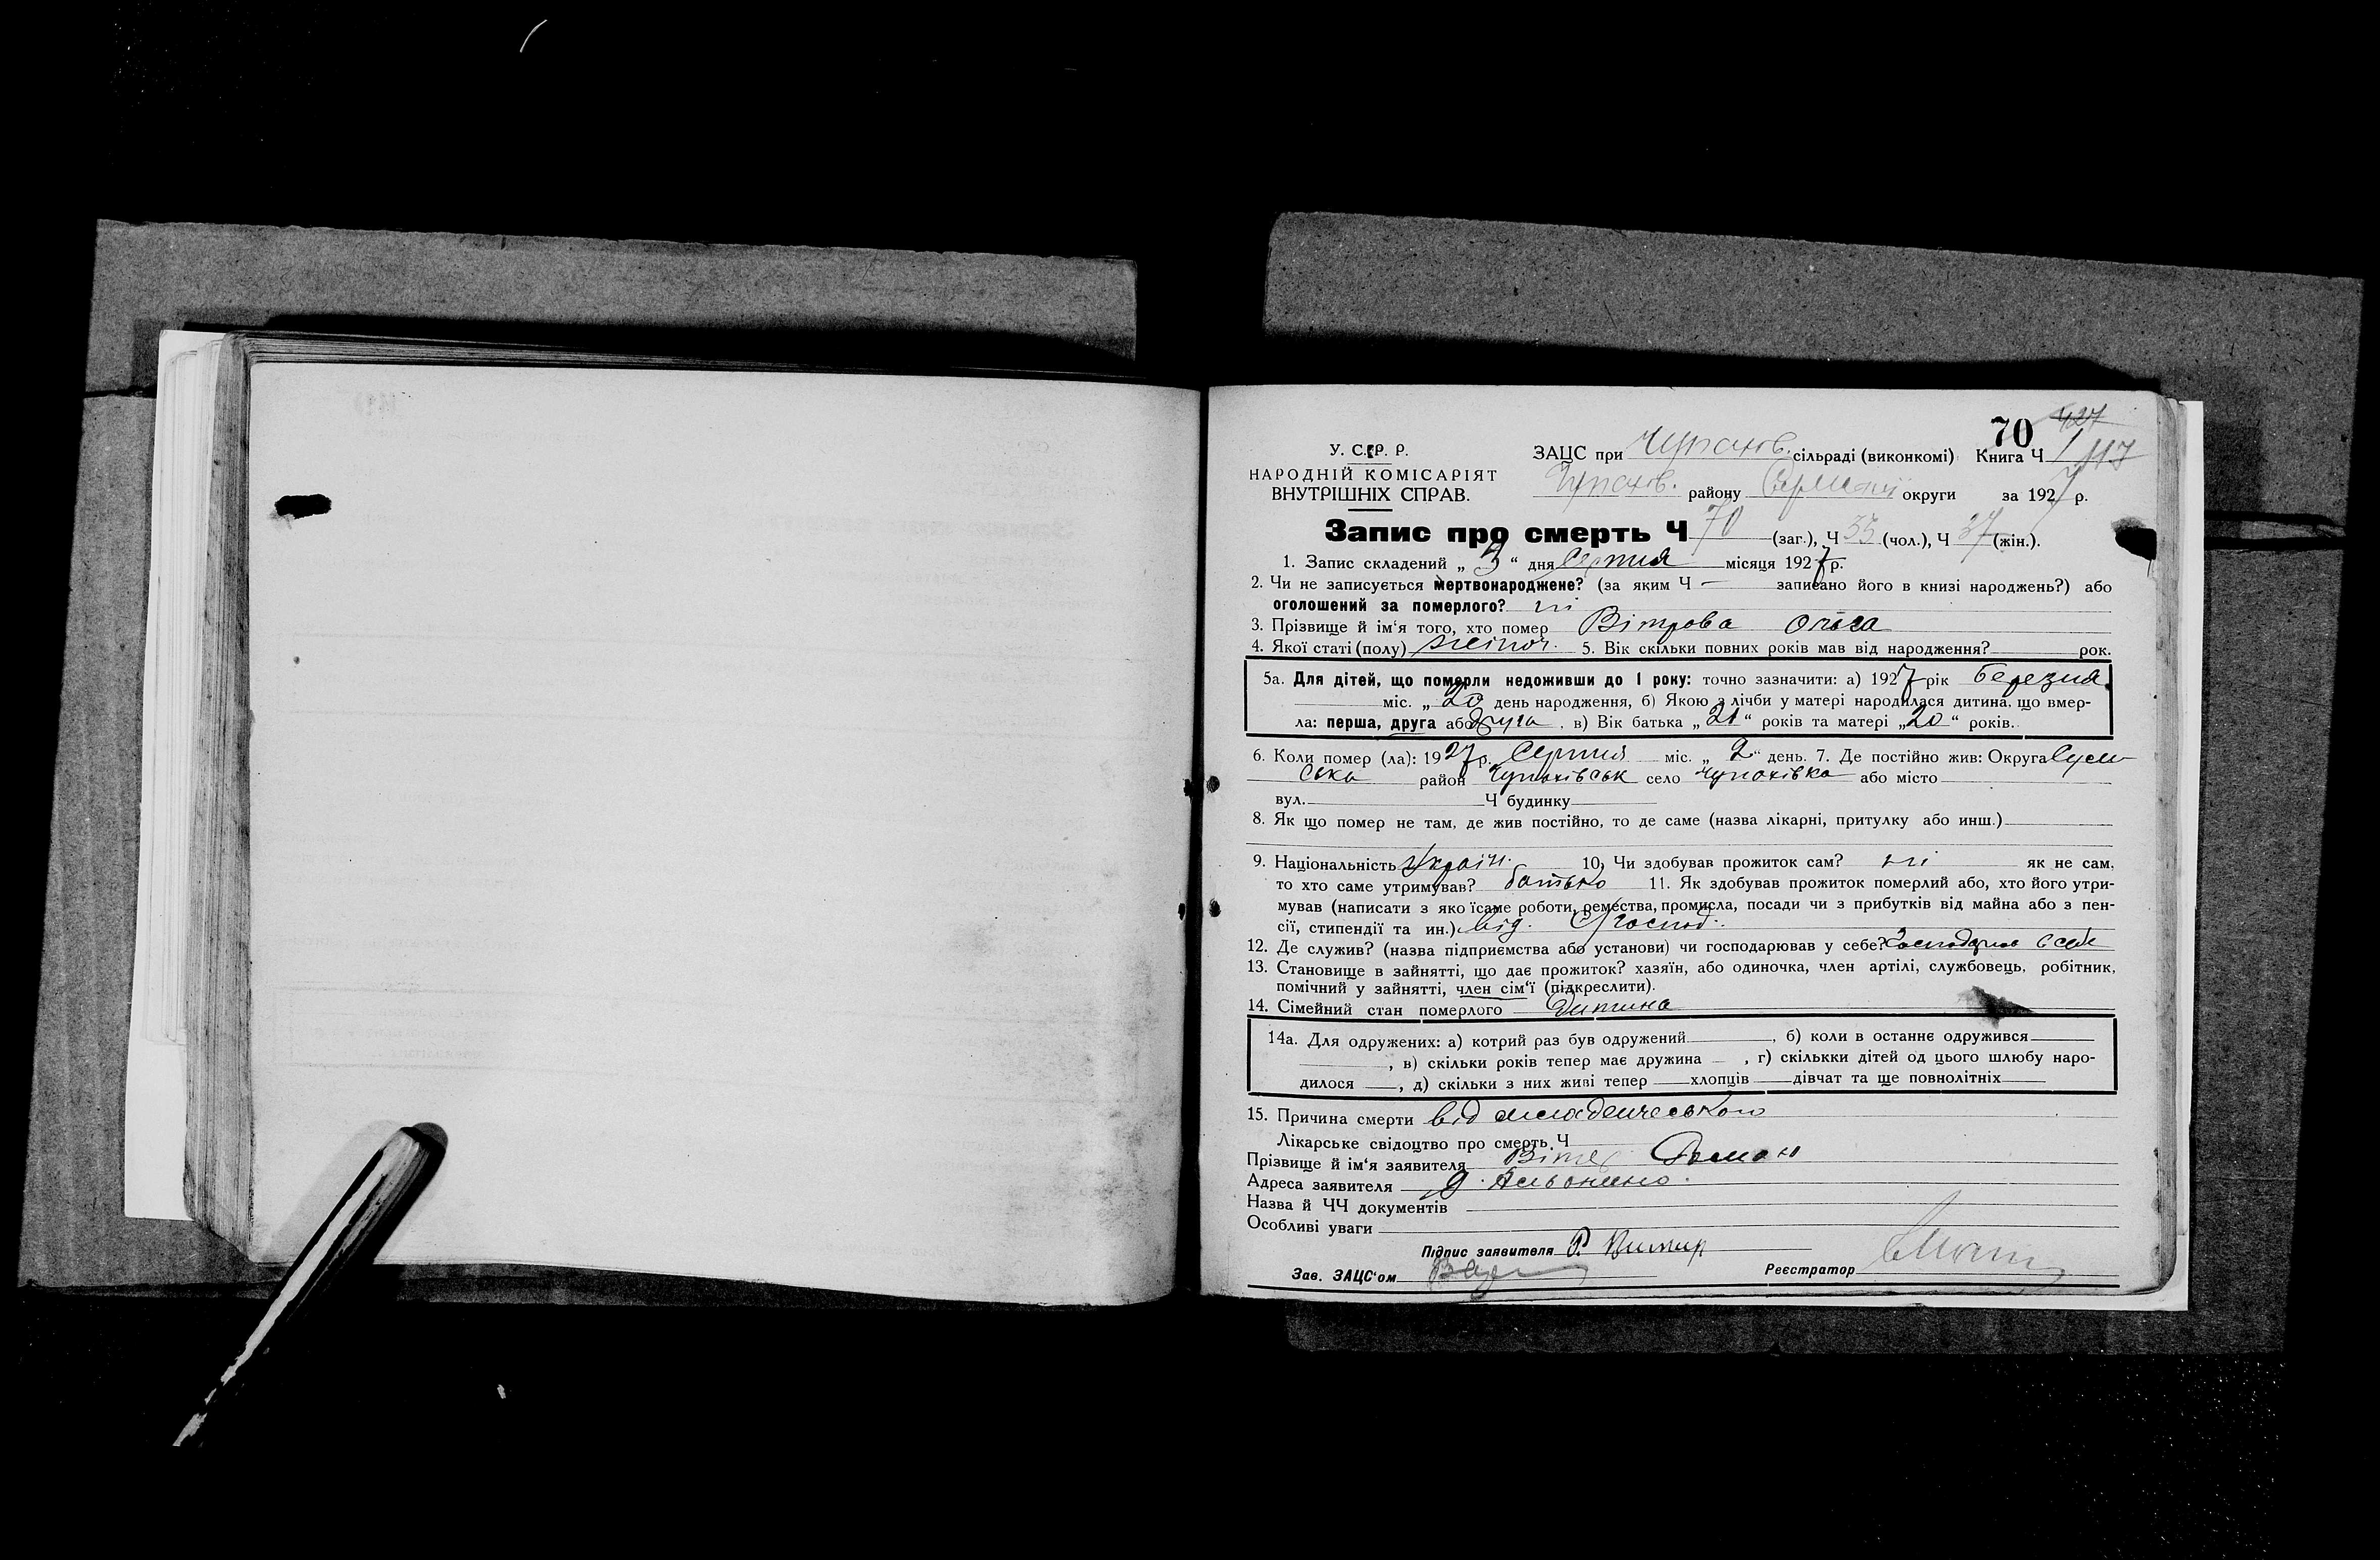 70 427
У. С. Р. Р. ЗАЦС при Чупахів. сільраді (виконкомі) Книга Ч 1/117
НАРОДНІЙ КОМІСАРІЯТ
ВНУТРІШНІХ СПРАВ. Чупахів. району округи за 1927 р.
Запис про смерть Ч 70 (заг.), Ч 33 (чол.), Ч 37 (жін.).
1. Запис складений „ 3 “ дня Серпня місяця 1927 р.
2. Чи не записується мертвонароджене? (за яким Ч — записано його в книзі народжень?) або
оголошений за померлого? ні
3. Прізвище й ім‘я того, хто помер Вітрова Ольга
4. Якої статі (полу) жіноч. 5. Вік скільки повних років мав від народження? рок.
5а. Для дітей, що померли недоживши до 1 року: точно зазначити: а) 1927 рік березня
міс. „ 20 день народження, б) Якою з лічби у матері народилася дитина, що вмер-
ла: перша, друга або друга , в) Вік батька „ 21 “ років та матері „ 20 “ років.
6. Коли помер (ла): 1927 р. Серпня міс. „ 2 “ день. 7. Де постійно жив: Округа Сум-
ська район Чупахівськ село Чупахівка або місто
вул. Ч будинку
8. Як що помер не там, де жив постійно, то де саме (назва лікарні, притулку або инш.)
9. Національність Україн. 10, Чи здобував прожиток сам? ні як не сам,
то хто саме утримував? батько 11. Як здобував прожиток померлий або, хто його утри-
мував (написати з якоїсаме роботи, ремества, промисла, посади чи з прибутків від майна або з пен-
сії, стипендії та ин.) від. С/господ.
12. Де служив? (назва підприємства або установи) чи господарював у себе? в себе
13. Становище в зайнятті, що дає прожиток? хазяїн, або одиночка, член артілі, службовець, робітник,
помічний у зайнятті, член сім‘ї (підкреслити).
14. Сімейний стан померлого Дитина
14а. Для одружених: а) котрий раз був одружений , б) коли в останнє одружився
, в) скільки років тепер має дружина — , г) скількки дітей од цього шлюбу наро-
дилося , д) скільки з них живі тепер хлопців дівчат та ще повнолітніх
15. Причина смерти від младенческого
Лікарське свідоцтво про смерть Ч
Прізвище й ім‘я заявителя Роман
Адреса заявителя
Назва й ЧЧ документів
Особливі уваги
Підпис заявителя Р.
Зав. ЗАЦС‘ом Реєстратор